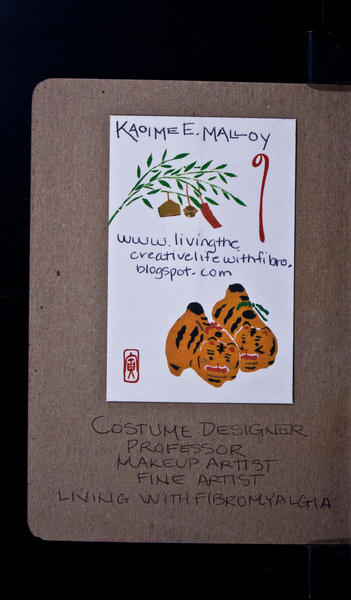 KAOIME E. MALLOY
www.livingthe
creativelifewithfibro.
blogspot.com
寅
COSTUME DESIGNER
PROFESSOR
MAKEUP ARTIST
FINE ARTIST
LIVING WITH FIBROMYALGIA